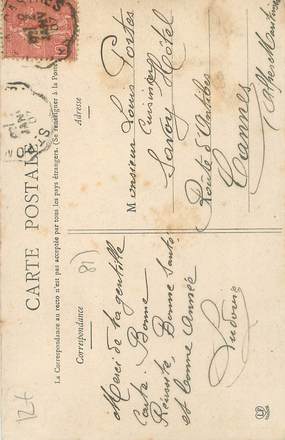 CARTE POSTALE
La Correspondance au recto n'est pas acceptée par tous les pays étrangers. (Se renseigner à la Poste)
Correspondance
Adresse
81)
Merci de ta gentille
Carte. Bonne
Réussite, Bonne Santé
et bonne Année
Ludovic
Monsieur Louis Portes
Cuisinier
Savoy Hôtel
Route d'Antibes
Cannes
(Alpes Maritimes)